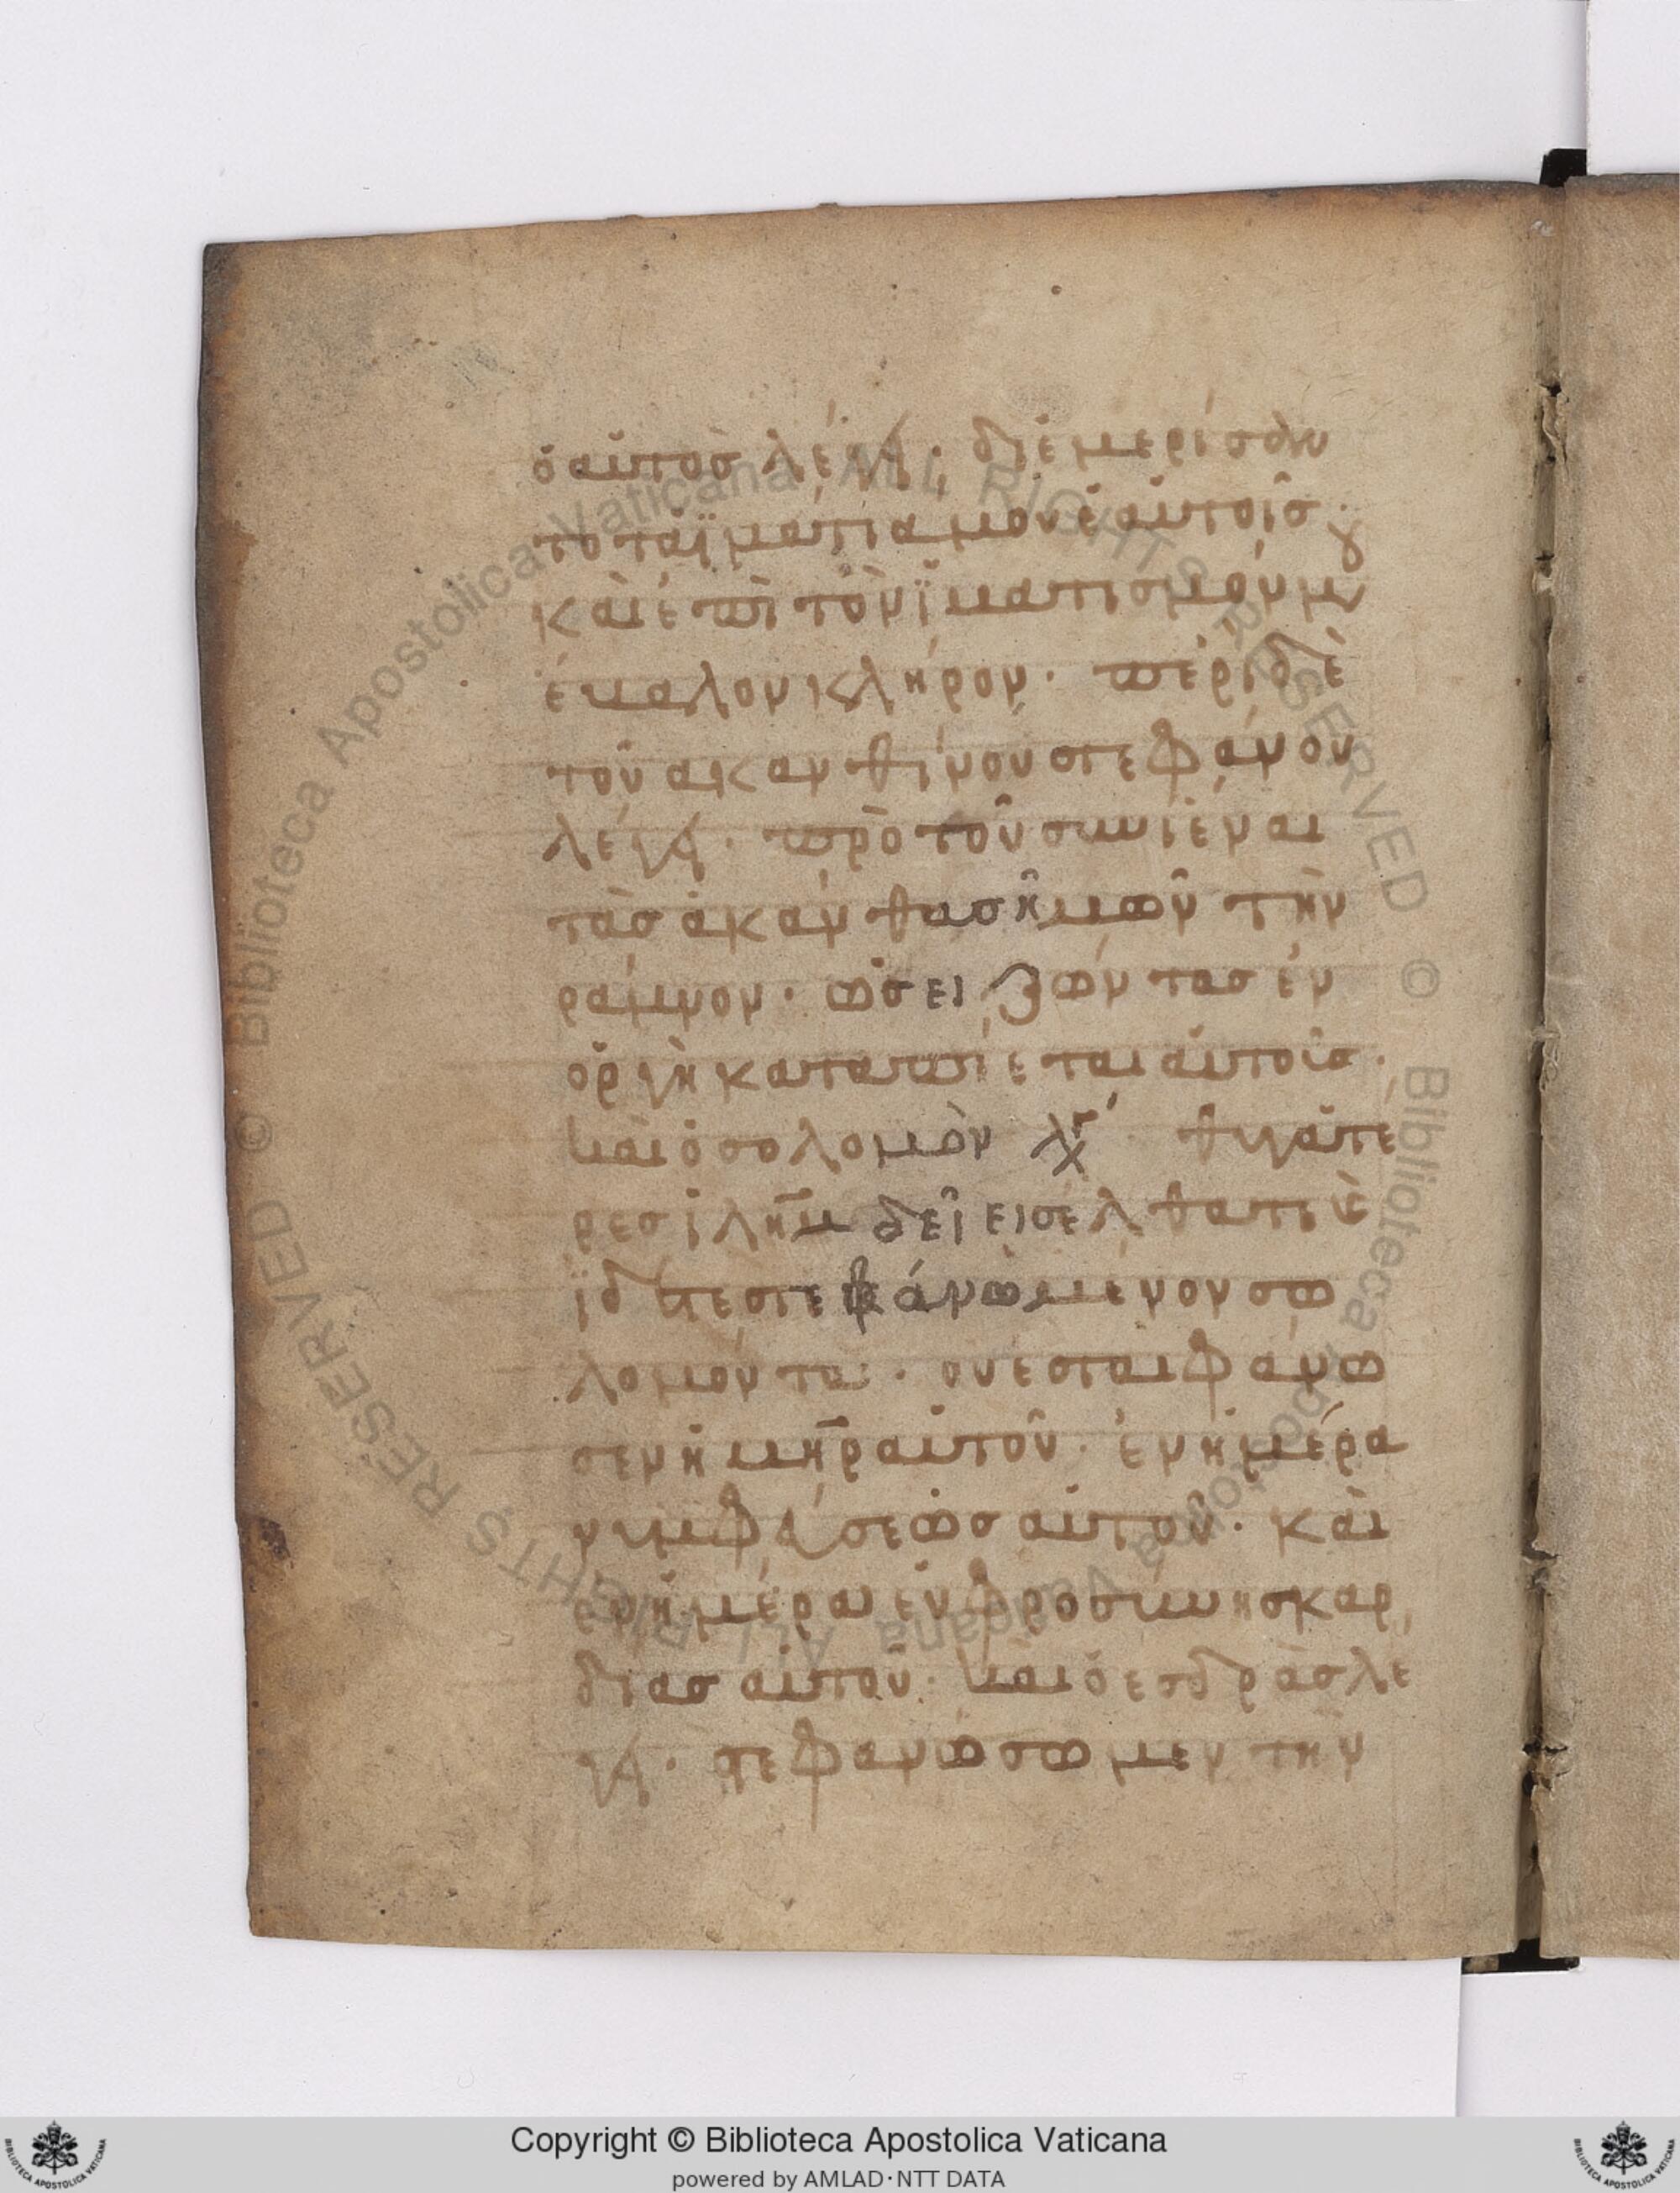 ὁ αὐτὸσ λέγει· διεμερίσαν
το τὰ ϊμάτιά μου ἑαυτοῖσ·
καὶ ἐπὶ τὸν ϊματισμόν μου
ἔβαλον κλήρον· περὶ δὲ
τοῦ ακανθίνου στεφάνου
λέγει· πρὸ τοῦ συνιέναι
τὰσ ἀκάνθασ ἡμῶν τὴν
ράμνον· ὡσει ζῶντασ ἐν
ὀργὴ καταπίεται αὐτοὺσ·
καὶ ὁ σολομὸν λγ· θυγατέ
ρεσ ϊλημ δεῖ εισελθατε
ϊδετε στεφάνὼμενον σω
λομόντα· ον εσταιφάνω
σεν ἡ μηρ αὐτοῦ· ἐν ἡμέρα
νυμφεύσεὼσ αὐτοῦ· καὶ
εν ἡμέρα εὐφροσύνησ καρ
δίασ αὐτοῦ· καὶ ὁ εσδρὰσ λέ
γει· στεφανώσωμεν τὴν
Copyright © Biblioteca Apostolica Vaticana
powered by AMLAD·NTT DATA